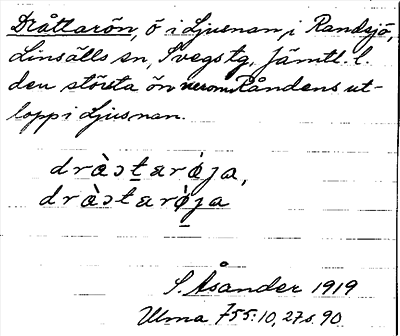 Dråttarön, ö i Ljusnan, i Randsjö,
Linsälls sn, Svegs tg, Jämtl. l.
den största ön nerom Råndens ut-
lopp i Ljusnan.
dràɔtarǿja,
dràɔtarǿja
S. Åsander 1919
Ulma 755:10, 27.s. 90